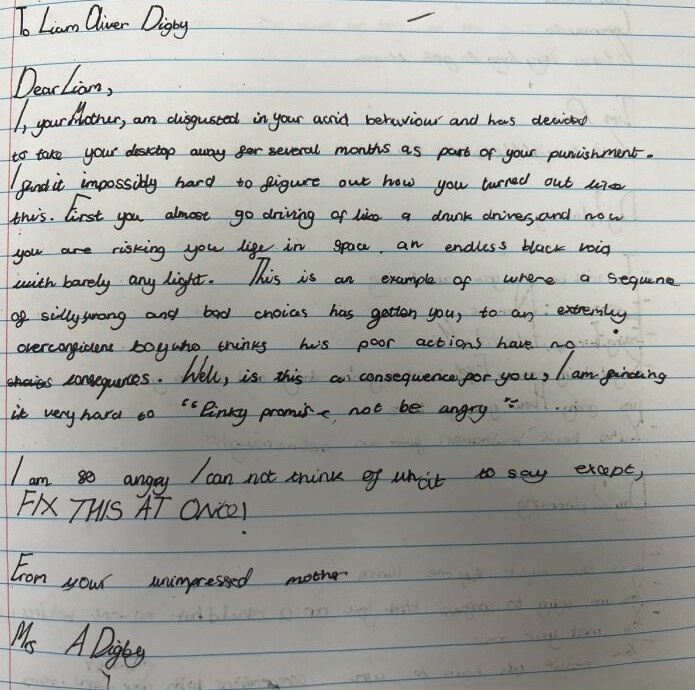 To Liam Oliver Digby
Dear Liam,
I, your Mother, am disgusted in your acrid behaviour and has decided
to take your desktop away for several months as part of your punishment.
I find it impossibly hard to figure out how you turned out like
this. First you almost go driving of like a drunk driver, and now
you are risking you life in space, an endless black void
with barely any light. This is an example of where a sequence
of silly wrong and bad choices has gotten you, to an extremley
overconfident boy who thinks his poor actions have no
choices consequences. Well, is this a consequence for you, I am finding
it very hard to "Pinky promise, not be angry".
I am so angry I can not think of what to say except,
FIX THIS AT ONCE!
From your unimpressed mother
Mrs A Digby